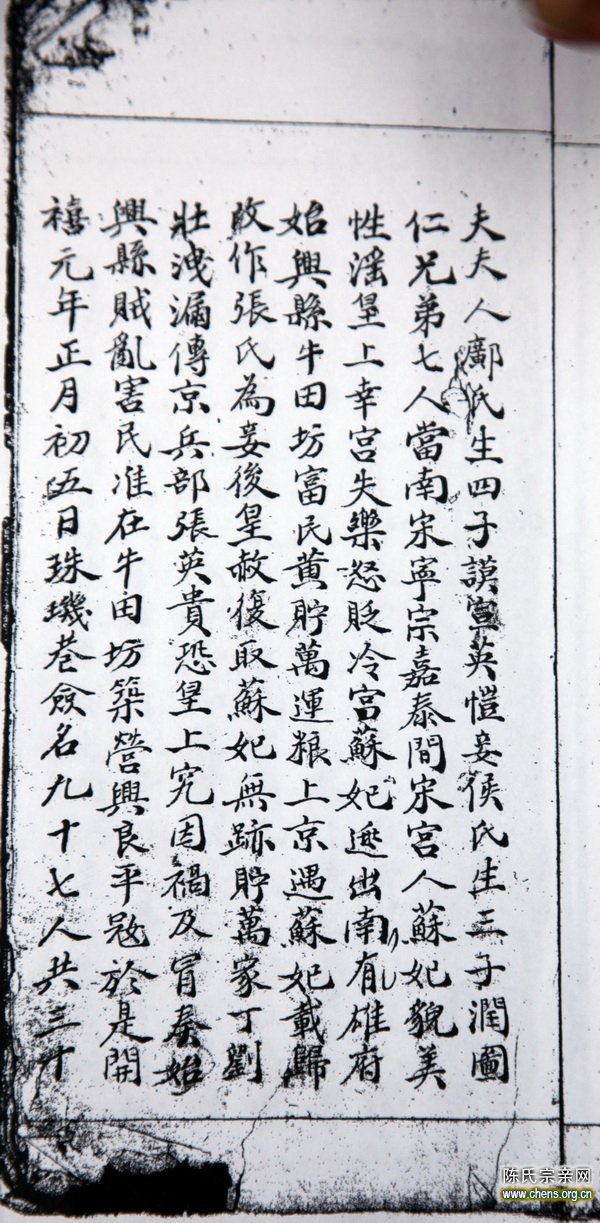 夫夫人鄺氏生四子謨寧英愷妾侯氏生三子潤圖
仁兄弟七人當南宋寧宗嘉泰間宋宮人蘇妃貌美
性滛皇上幸宮失樂怒貶冷宮蘇妃逃出南有雄府
始興縣牛田坊富民黃貯萬運粮上京遇蘇妃載歸
改作張氏為妾後皇赦復取蘇妃無跡貯萬家丁劉
壯洩漏傳京兵部張英貴恐皇上究因禍及冐奏始
興縣賊亂害民准在牛田坊築營興良平冦於是開
禧元年正月初五日珠璣巷僉名九十七人共三十
陈氏宗亲网
www.chens.org.cn